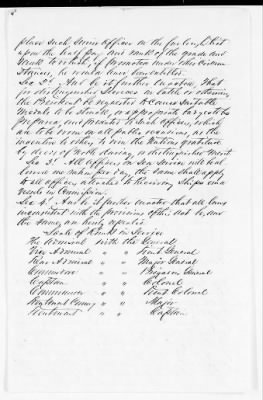 place such Senior Officers on the furlough list
upon the half pay and rank of the grade and
rank to which, if promoted under other circum
stances, he would have been entitled.
Sec 2d. And be it further enacted, That
for distinguished Services in battle or otherwise
the President be requested to cause suitable
Medals to be struck, or appropriate targets be
prepared and presented to such Officers, which
are to be worn on all public occasions, as the
incentive to others to earn the Nations gratitude
by deeds of noble daring, or distinguished merit.
Sec 3d. All Officers on Sea Service
per day, the same shall apply
to all officers attached to Receiving Ships and
vessels in Commission.
Sec 4. And be it further enacted that all laws
inconsistent with the provisions of this Act be, and
the same, are hereby repealed.
Scale of Ranks in Service
The Admiral with the General
Vice Admiral " " Lieut General
Rear Admiral " " Major General
Commodore " " Brigadier General
Captain " " Colonel
Commander " " Lieut Colonel
Lieutenant Comng " " Major
Lieutenant " " Captain